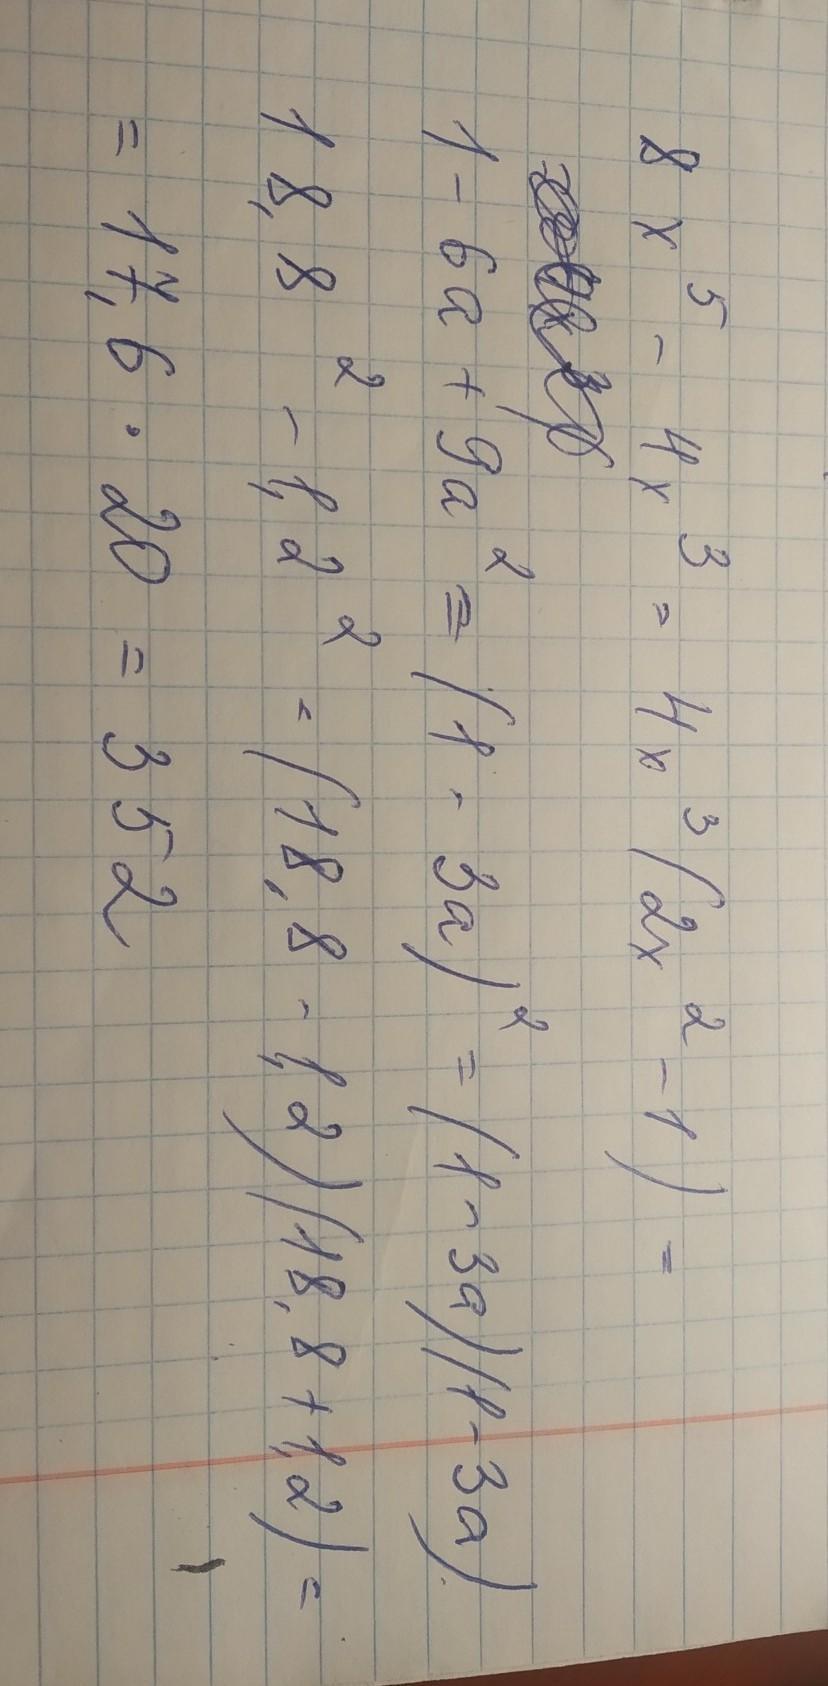 8x⁵ - 4x³ = 4x³(2x² - 1) =
1 - 6a + 9a² = (1 - 3a)² = (1 - 3a)(1 - 3a)
18,8² - 1,2² = (18,8 - 1,2)(18,8 + 1,2) =
= 17,6 · 20 = 352